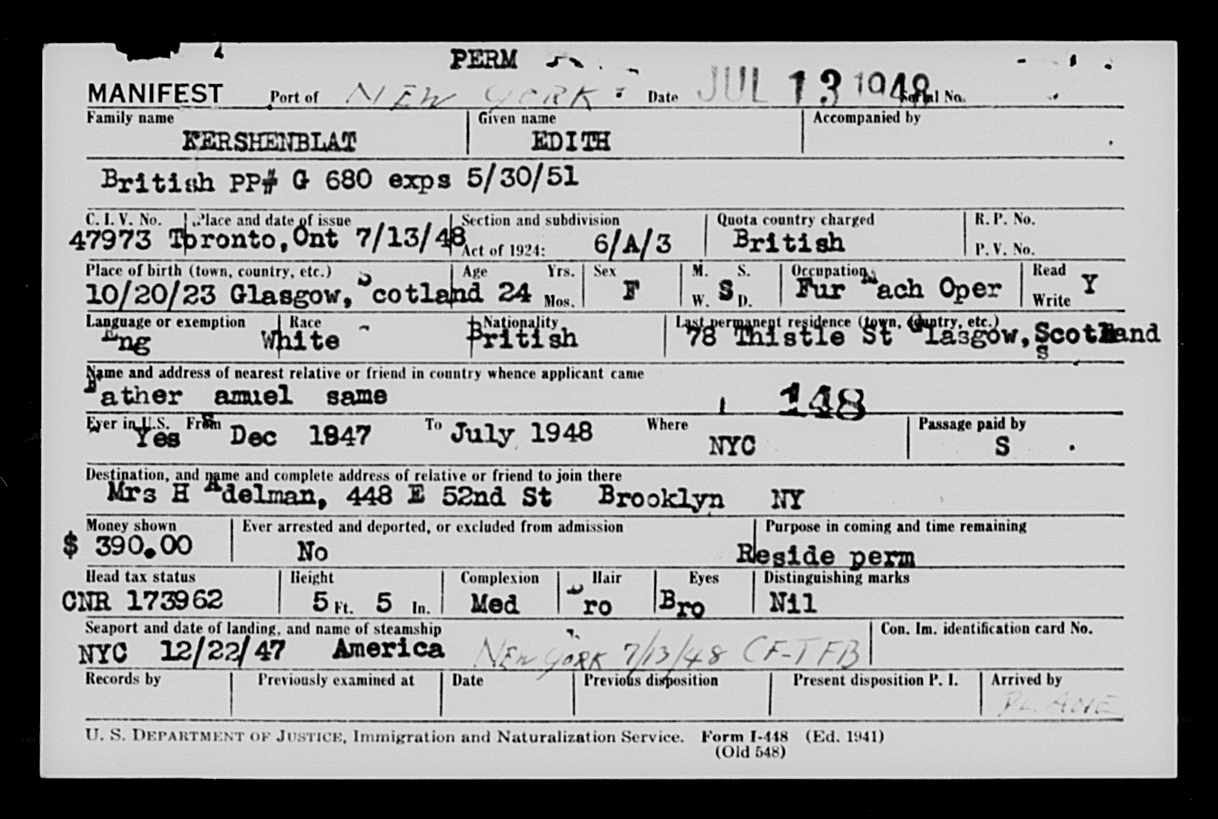 PERM
MANIFEST Port of NEW YORK Date JUL 13 1948 Serial No.
Family name Given name Accompanied by
KERSHENBLAT EDITH
British PP# G 680 exps 5/30/51
C. I. V. No. Place and date of issue Section and subdivision Quota country charged R. P. No.
47973 Toronto, Ont 7/13/48 Act of 1924: 6/A/3 British P. V. No.
Place of birth (town, country, etc.) Age Yrs. Sex M. S. Occupation Read
10/20/23 Glasgow, Scotland 24 Mos. F W. S D. Fur Mach Oper Write Y
Language or exemption Race Nationality Last permanent residence (town, country, etc.)
Eng White British 78 Thistle St Glasgow, Scotland
Name and address of nearest relative or friend in country whence applicant came
Father Samuel same 148
Ever in U.S. From To Where Passage paid by
Yes Dec 1947 July 1948 NYC S
Destination, and name and complete address of relative or friend to join there
Mrs H Adelman, 448 E 52nd St Brooklyn NY
Money shown Ever arrested and deported, or excluded from admission Purpose in coming and time remaining
$ 390.00 No Reside perm
Head tax status Height Complexion Hair Eyes Distinguishing marks
CNR 173962 5 Ft. 5 In. Med Bro Bro Nil
Seaport and date of landing, and name of steamship Con. Im. identification card No.
NYC 12/22/47 America NEW YORK 7/13/48 CF-TFB
Records by Previously examined at Date Previous disposition Present disposition P. I. Arrived by
PLANE
U. S. DEPARTMENT OF JUSTICE, Immigration and Naturalization Service. Form I-448 (Ed. 1941)
(Old 548)